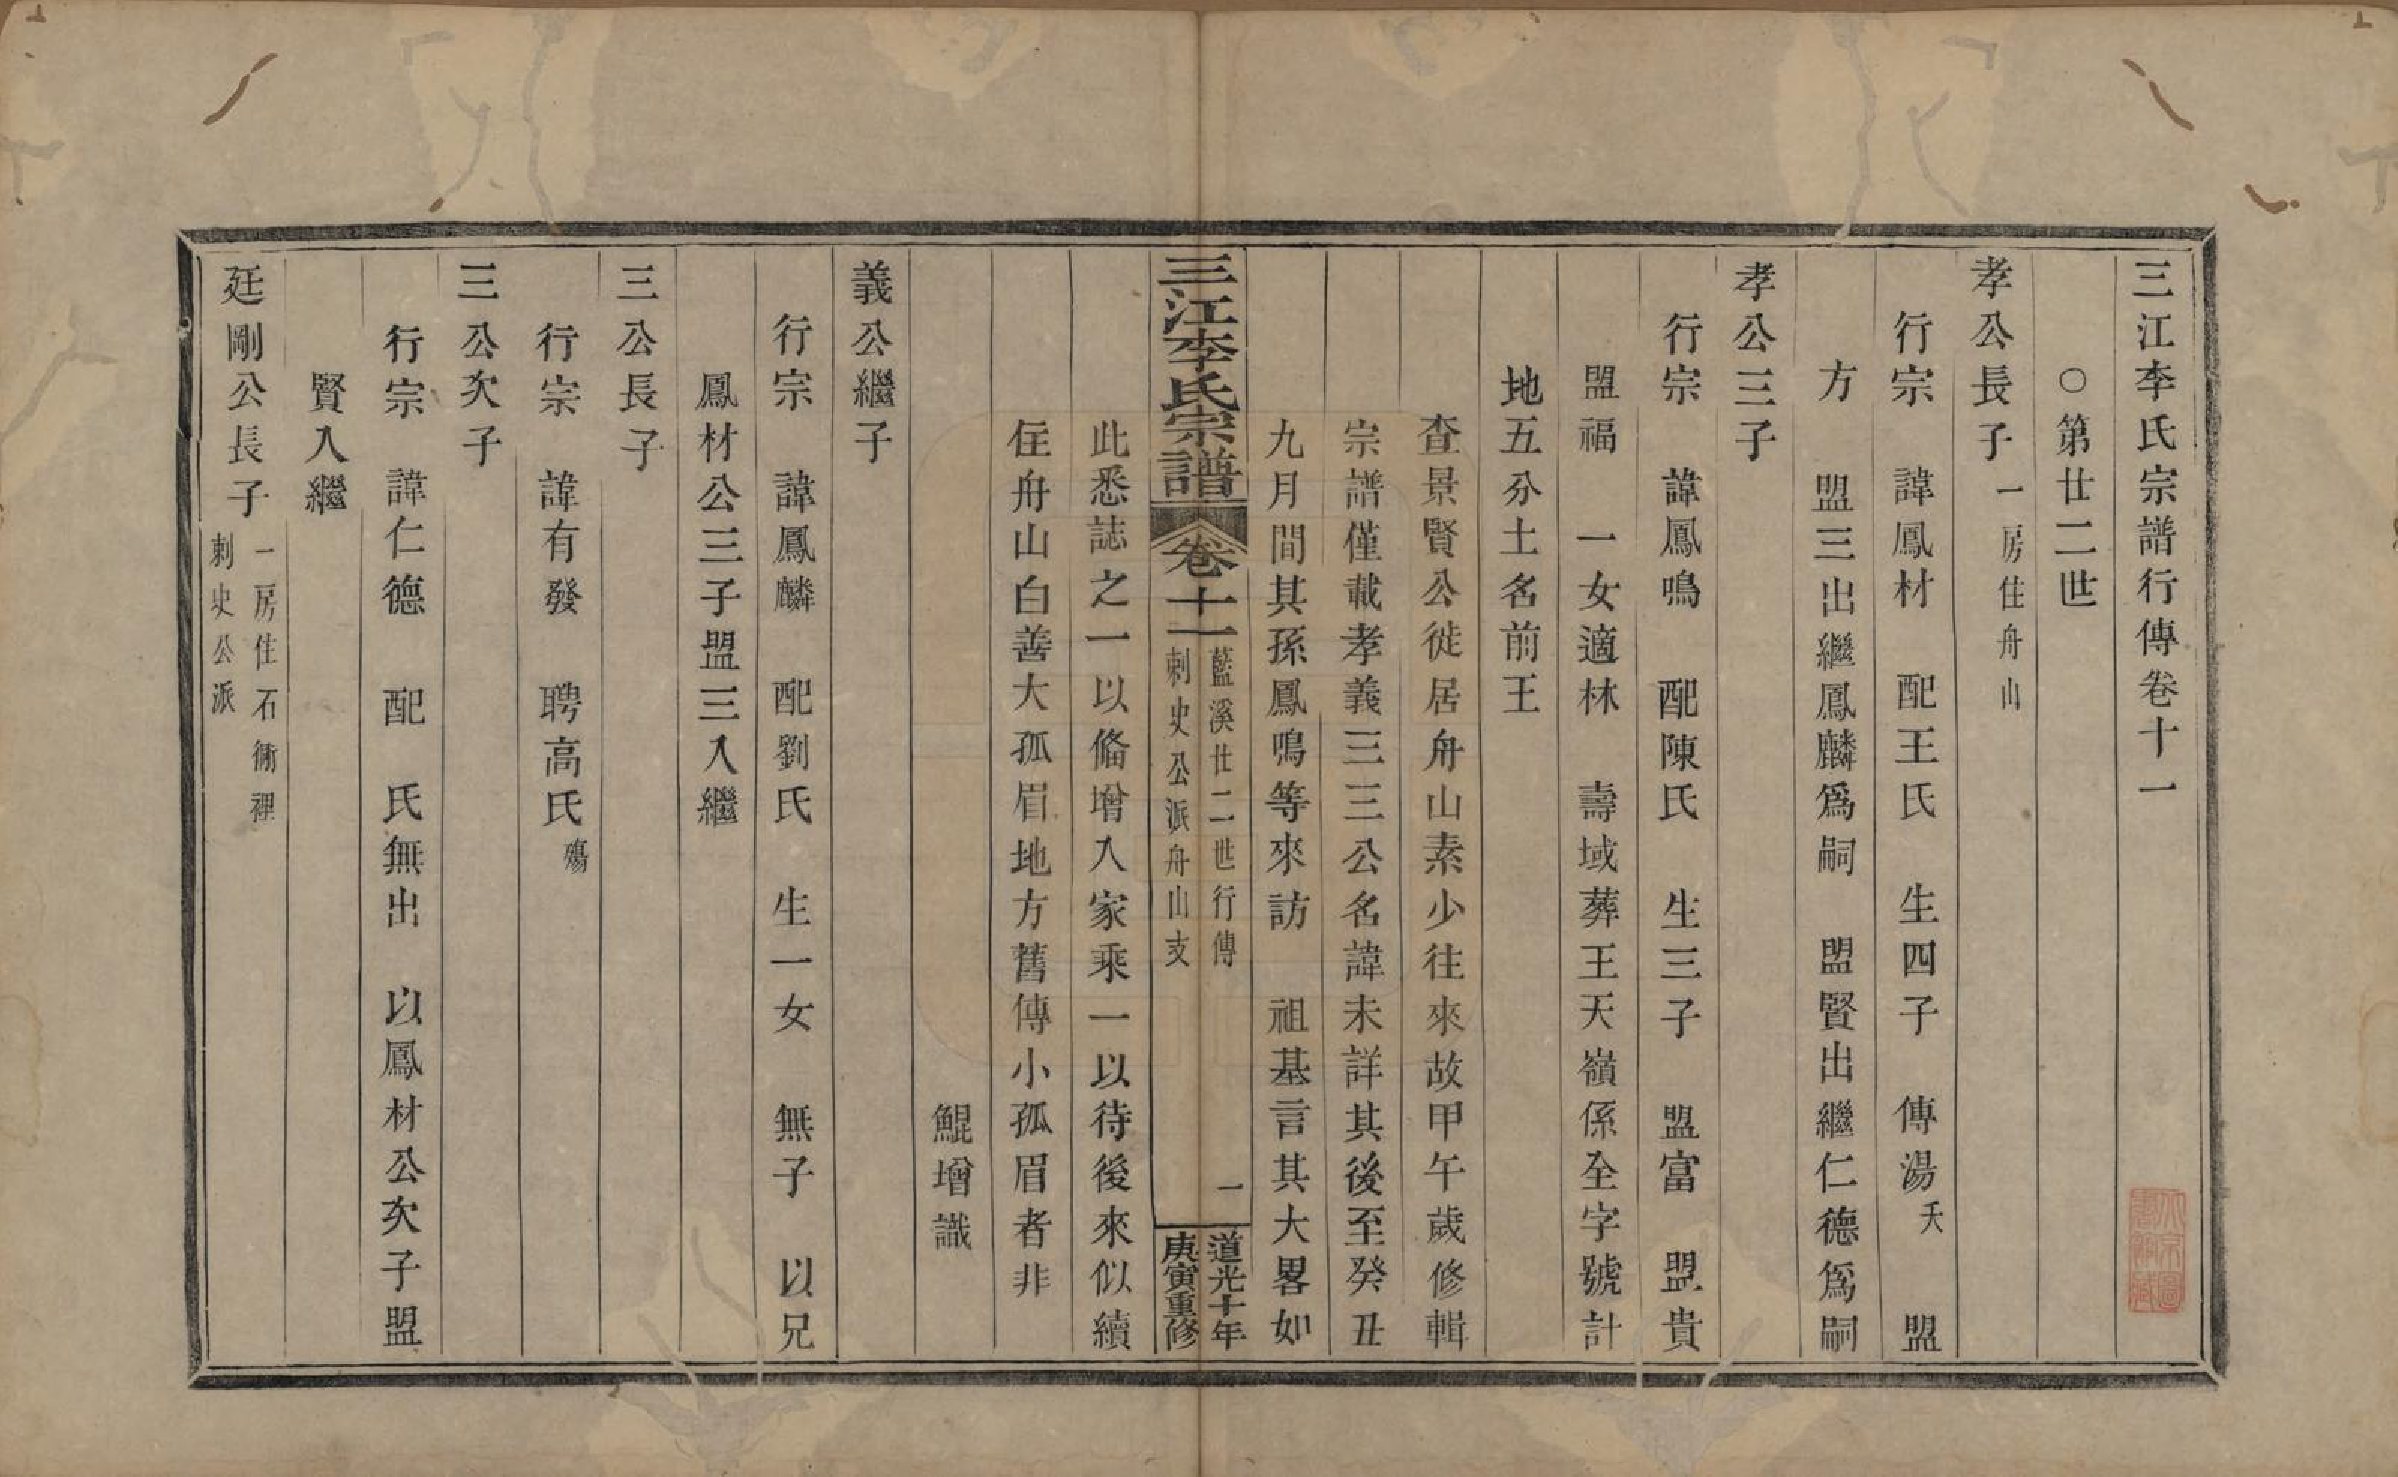 三江李氏宗譜行傳卷十一
○第廿二世
孝公長子一房住舟山
行宗　諱鳳材　配王氏　生四子　傳湯夭　盟
方　盟三出繼鳳麟爲嗣　盟賢出繼仁德爲嗣
孝公三子
行宗　諱鳳鳴　配陳氏　生三子　盟富　盟貴
盟福　一女適林　壽域葬王天嶺係全字號計
地五分土名前王
查景賢公徙居舟山素少往來故甲午歲修輯
宗譜僅載孝義三三公名諱未詳其後至癸丑
九月間其孫鳳鳴等來訪　祖基言其大畧如
三江李氏宗譜　卷十一
藍溪廿二世行傳
刺史公派舟山支
一
道光十年
庚寅重修
此悉誌之一以偹增入家乘一以待後來似續
住舟山白善大孤眉地方舊傳小孤眉者非
鯤增識
義公繼子
行宗　諱鳳麟　配劉氏　生一女　無子　以兄
鳳材公三子盟三入繼
三公長子
行宗　諱有發　聘高氏殤
三公次子
行宗　諱仁德　配　氏無出　以鳳材公次子盟
賢入繼
廷剛公長子
一房住石衕裡
刺史公派